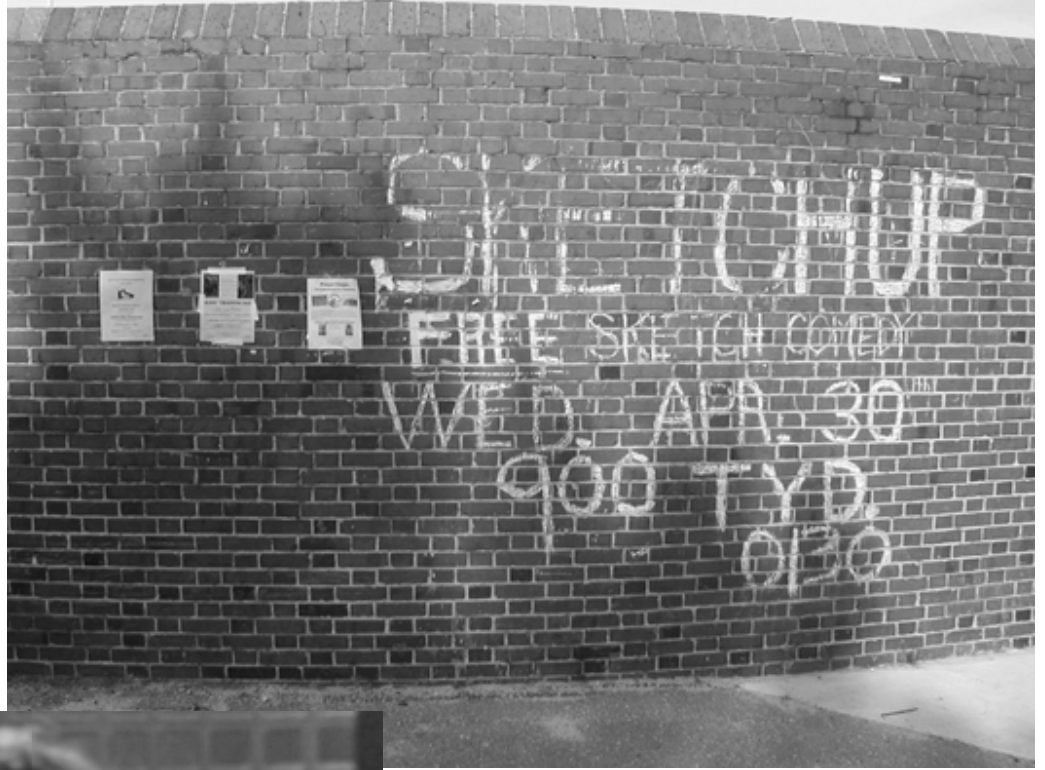 SKETCHUP
FREE SKETCH COMEDY
WED. APR. 30TH
900 TYD.
0130